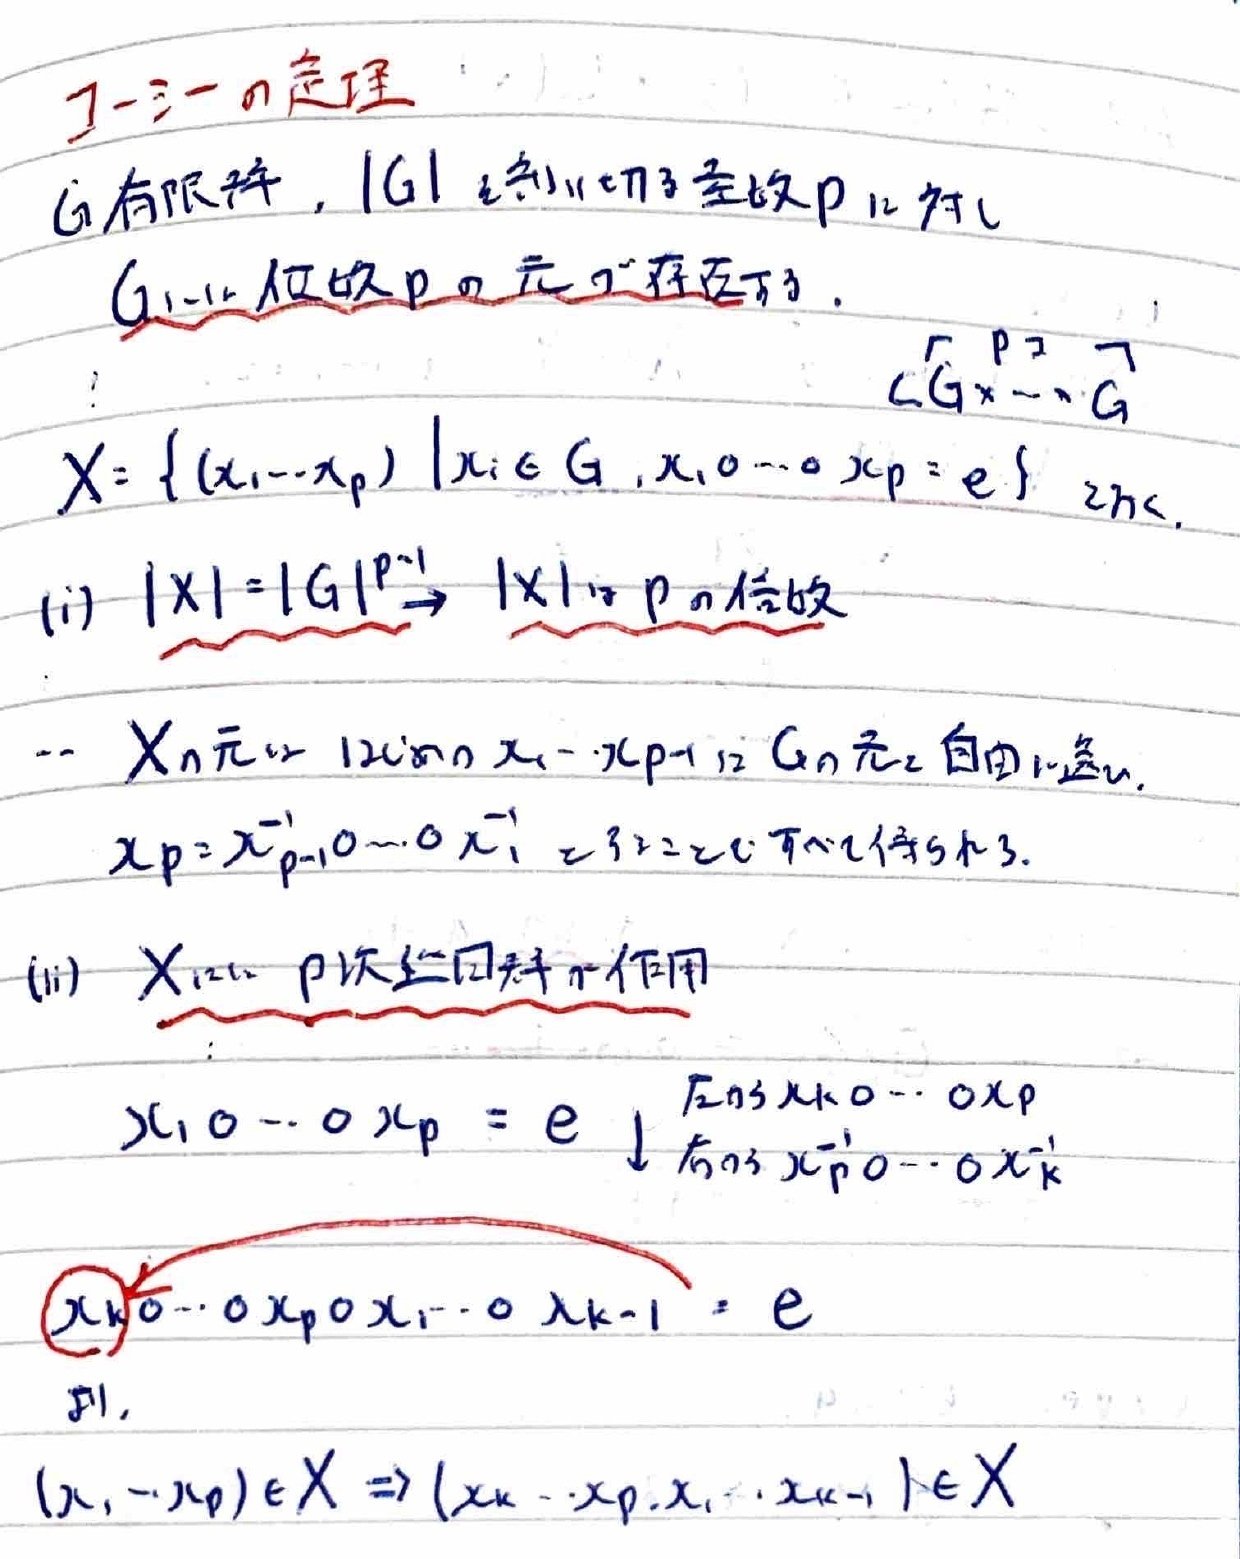 コーシーの定理
G有限群, |G|を割り切る素数pに対し
Gには位数pの元が存在する.
∵
pコ
⊂G×…×G
X={(x₁…xₚ)|xᵢ∈G, x₁∘…∘xₚ=e}とおく.
(i) |X|=|G|ᵖ⁻¹→ |X|は pの倍数
… Xの元は はじめの x₁…xₚ₋₁に Gの元を自由に選び,
xₚ=xₚ₋₁⁻¹∘…∘x₁⁻¹ とすることで すべて得られる.
(ii) Xには p次巡回群が作用
∵
x₁∘…∘xₚ = e ↓ 左から xₖ∘…∘xₚ
右から xₚ⁻¹∘…∘xₖ⁻¹
xₖ∘…∘xₚ∘x₁…∘xₖ₋₁ = e
より,
(x₁…xₚ)∈X ⇒ (xₖ…xₚ.x₁…xₖ₋₁)∈X